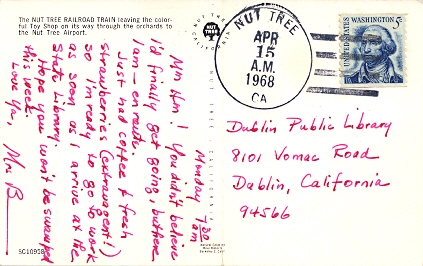 The NUT TREE RAILROAD TRAIN leaving the color-
ful Toy Shop on its way through the orchards to
the Nut Tree Airport.
NUT TREE
CALIFORNIA
NUT TREE
APR
15
A.M.
1968
CA
UNITED STATES
WASHINGTON 5c
Monday 7:30
am
Mm Hm! You didn't believe
I'd finally get going, but here
I am - en route.
Just had coffee & fresh
strawberries (extravagent!)
so I'm ready to go to work
as soon as I arrive at the
State Library.
Hope you won't be swamped
this week.
Love Ya,
Mrs B
Dublin Public Library
8101 Vomac Road
Dublin, California
94566
NUT TREE CALIFORNIA